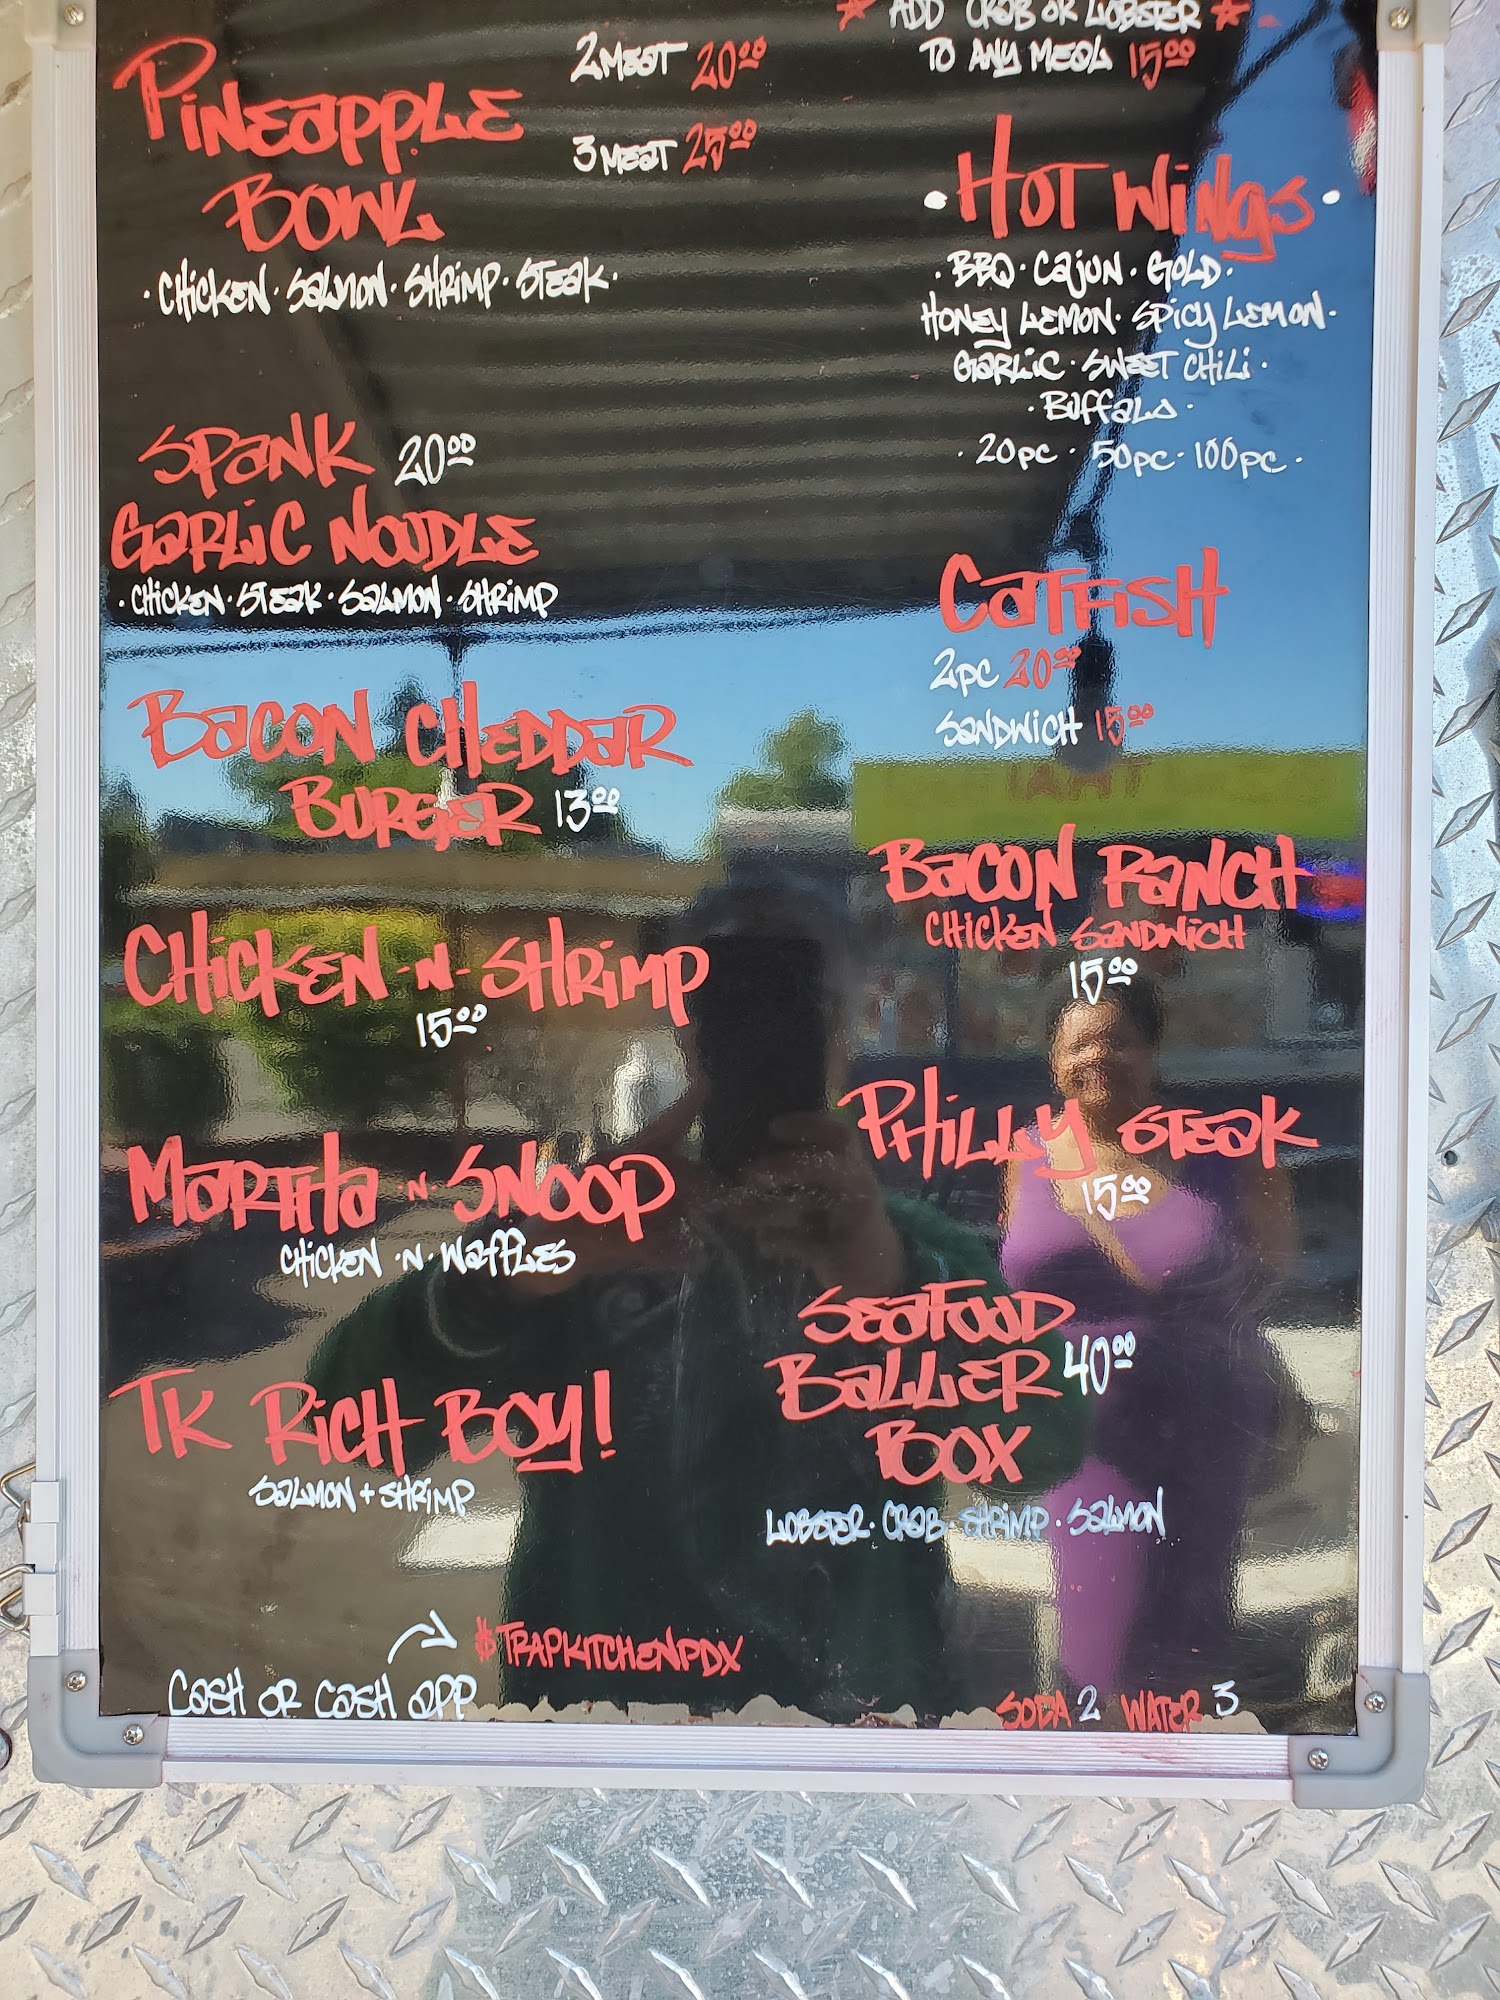 PINEAPPLE
BOWL
2 MEAT 20.00
3 MEAT 25.00
· CHICKEN · SALMON · SHRIMP · STEAK ·
SPANK 20.00
GARLIC NOODLE
· CHICKEN · STEAK · SALMON · SHRIMP
BACON CHEDDAR
BURGER 13.00
CHICKEN -N- SHRIMP
15.00
MARTHA -N- SNOOP
CHICKEN ·N· WAFFLES
TK RICH BOY!
SALMON + SHRIMP
ADD CRAB OR LOBSTER
TO ANY MEAL 15.00
· HOT WINGS ·
· BBQ · CAJUN · GOLD ·
HONEY LEMON · SPICY LEMON ·
GARLIC · SWEET CHILI ·
· BUFFALO ·
· 20pc · 50pc · 100pc ·
CATFISH
2pc 20.00
SANDWICH 15.00
BACON RANCH
CHICKEN SANDWICH
15.00
PHILLY STEAK
15.00
SEAFOOD
BALLER 40.00
BOX
LOBSTER · CRAB · SHRIMP · SALMON
$TRAPKITCHENPDX
CASH OR CASH APP
SODA 2 WATER 3